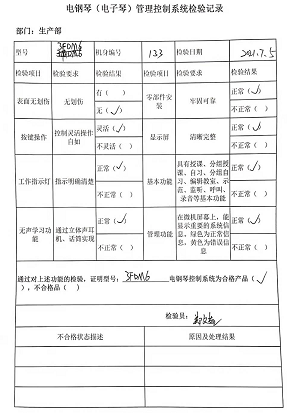 电钢琴（电子琴）管理控制系统检验记录
部门：生产部
型号 3FDM6 机身编号 133 检验日期 2021.7.5
检验项目 检验要求 检验结果 检验项目 检验要求 检验结果
表面无划伤 无划伤 有（ ） 无（√） 零部件安装 牢固可靠 正常（√） 不正常（ ）
按键操作 控制灵活操作自如 灵活（√） 不灵活（ ） 显示屏 清晰完整 正常（√） 不正常（ ）
工作指示灯 指示明确清楚 正常（√） 不正常（ ） 基本功能 具有授课、分组授课、自习、分组自习、编辑教室、示范、监听、呼叫、录音等基本功能 正常（√） 不正常（ ）
无声学习功能 通过立体声耳机、话筒实现 正常（√） 不正常（ ） 管理功能 在微机屏幕上，能显示重要的系统信息，绿色为正常信息，黄色为错误信息 正常（√） 不正常（ ）
通过对上述功能的检验，证明型号：3FDM6 电钢琴控制系统为合格产品（√
），不合格品（ ）
检验员：
不合格状态描述 原因及处理结果